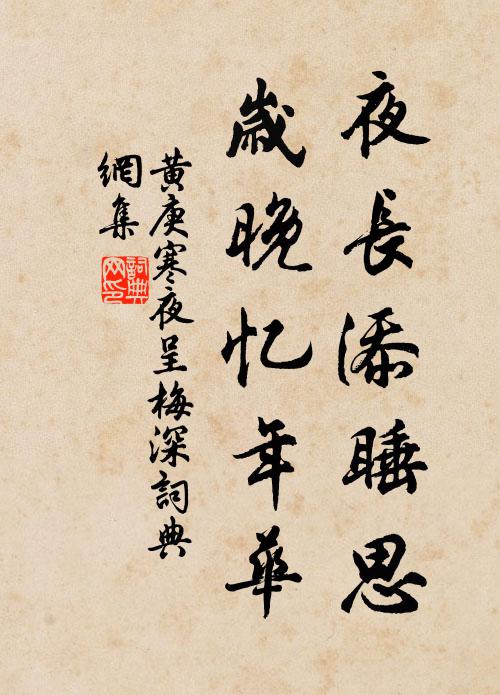 夜長添睡思
歲晚忆年華
黄庚寒夜呈梅深詞典
網集
詞典
网印